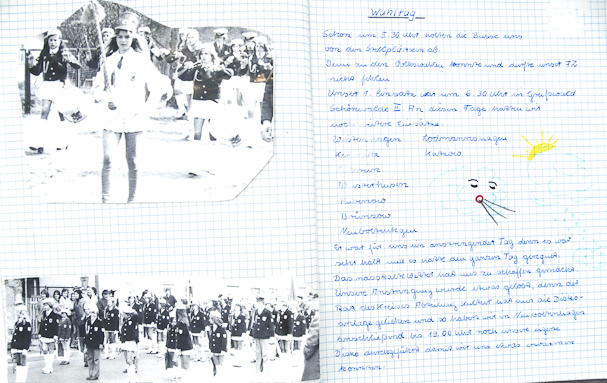 Wahltag
Schon um 5.30 Uhr holten die Busse uns
von den Stellplätzen ab.
Denn zu den Volkswahlen konnte und durfte unser FZ
nicht fehlen
Unser 1. Einsatz war um 6.30 Uhr in Greifswald
Schönwalde II. An diesem Tage hatten wir
noch weitere Einsätze.
Hanshagen Lodmannshagen
Katzow
Wusterhusen
Brünzow
Neuboltenhagen
Es war für uns ein anstrengender Tag denn es war
sehr kalt und es hatte den ganzen Tag geregnet.
Das nasskalte Wetter hat uns zu schaffen gemacht.
Unsere Anstrengung wurde etwas gelobt, denn der
Rat des Kreises Abteilung Kultur hat uns die Disko-
anlage geliehen und so haben wir in Neuboltenhagen
anschließend bis 19.00 Uhr noch unsere eigene
Disko durchgeführt damit wir uns etwas
konnten.